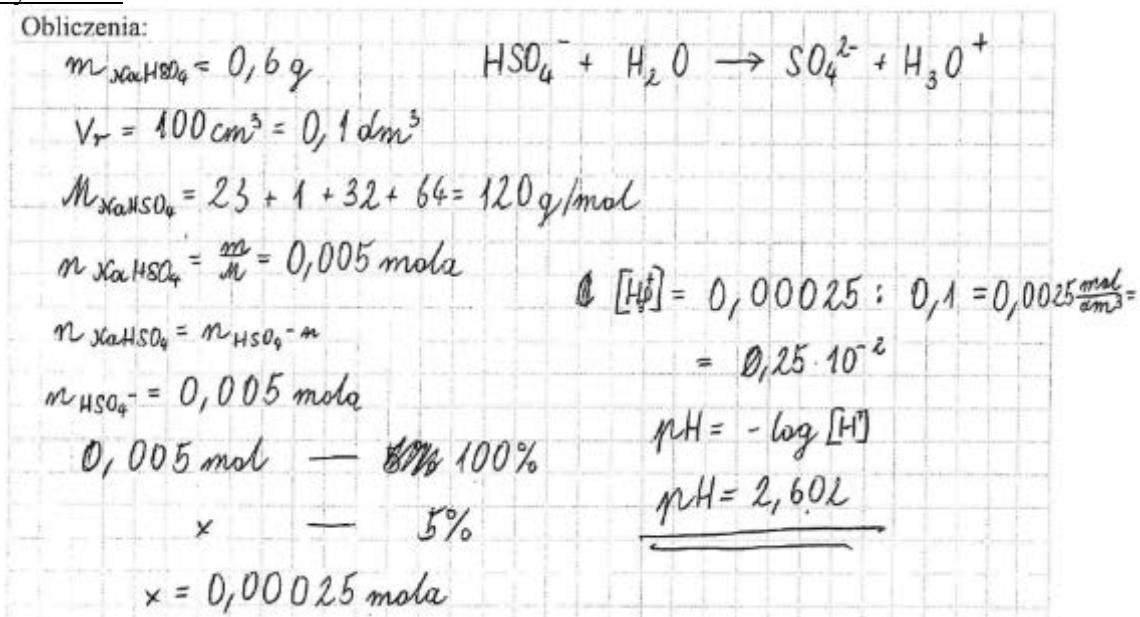 Obliczenia:
m NaHSO₄ = 0,6 g
HSO₄⁻ + H₂O → SO₄²⁻ + H₃O⁺
Vr = 100 cm³ = 0,1 dm³
M NaHSO₄ = 23 + 1 + 32 + 64 = 120 g/mol
n NaHSO₄ = m/M = 0,005 mola
n NaHSO₄ = n HSO₄⁻
n HSO₄⁻ = 0,005 mola
0,005 mol — 100%
x — 5%
x = 0,00025 mola
[H⁺] = 0,00025 : 0,1 = 0,0025 mol/dm³ =
= 0,25 · 10⁻²
pH = - log [H⁺]
pH = 2,602